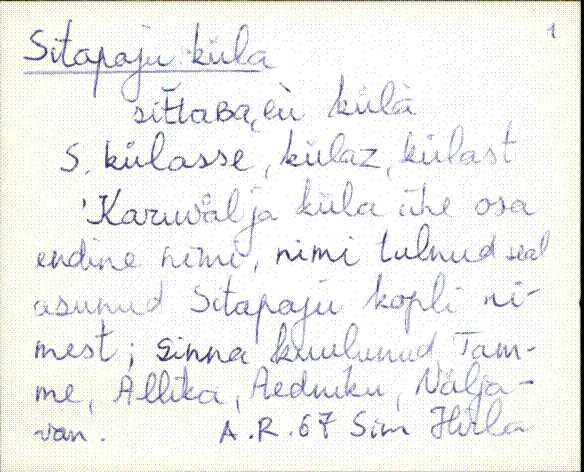 1
Sitapaju küla
sittaBa,ɛ̀ù külà
S. külasse, külaz, külast
'Karuvälja küla ühe osa
endine nimi, nimi tulnud seal
asunud Sitapaju kopli ni-
mest; sinna kuulunud Tam-
me, Allika, Aedniku, Nälja-
van. A.R. 67 Sim Hirla